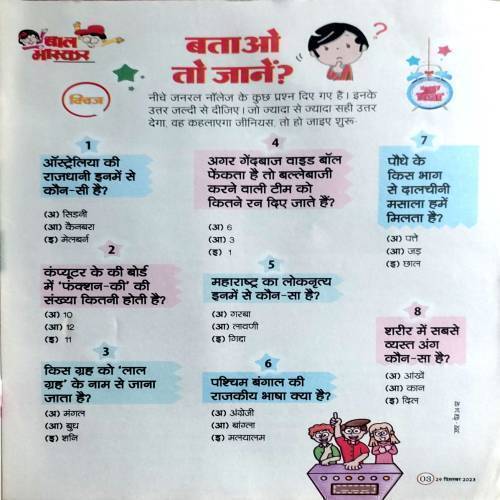 बाल
भास्कर
बताओ
तो जानें?
क्विज
नीचे जनरल नॉलेज के कुछ प्रश्न दिए गए है। इनके
उत्तर जल्दी से दीजिए। जो ज्यादा से ज्यादा सही उत्तर
देगा, वह कहलाएगा जीनियस, तो हो जाइए शुरू-
1
ऑस्ट्रेलिया की
राजधानी इनमें से
कौन-सी है?
(अ) सिडनी
(आ) कैनबरा
(इ) मेलबर्न
2
कंप्यूटर के की बोर्ड
में 'फंक्शन-की' की
संख्या कितनी होती है?
(अ) 10
(आ) 12
(इ) 11
3
किस ग्रह को 'लाल
ग्रह' के नाम से जाना
जाता है?
(अ) मंगल
(आ) बुध
(इ) शनि
4
अगर गेंदबाज वाइड बॉल
फेंकता है तो बल्लेबाजी
करने वाली टीम को
कितने रन दिए जाते हैं?
(अ) 6
(आ) 3
(इ) 1
5
महाराष्ट्र का लोकनृत्य
इनमें से कौन-सा है?
(अ) गरबा
(आ) लावणी
(इ) गिद्दा
6
पश्चिम बंगाल की
राजकीय भाषा क्या है?
(अ) अंग्रेजी
(आ) बांग्ला
(इ) मलयालम
7
पौधे के
किस भाग
से दालचीनी
मसाला हमें
मिलता है?
(अ) पत्ते
(आ) जड़
(इ) छाल
8
शरीर में सबसे
व्यस्त अंग
कौन-सा है?
(अ) आंखें
(आ) कान
(इ) दिल
03 29 दिसम्बर 2023